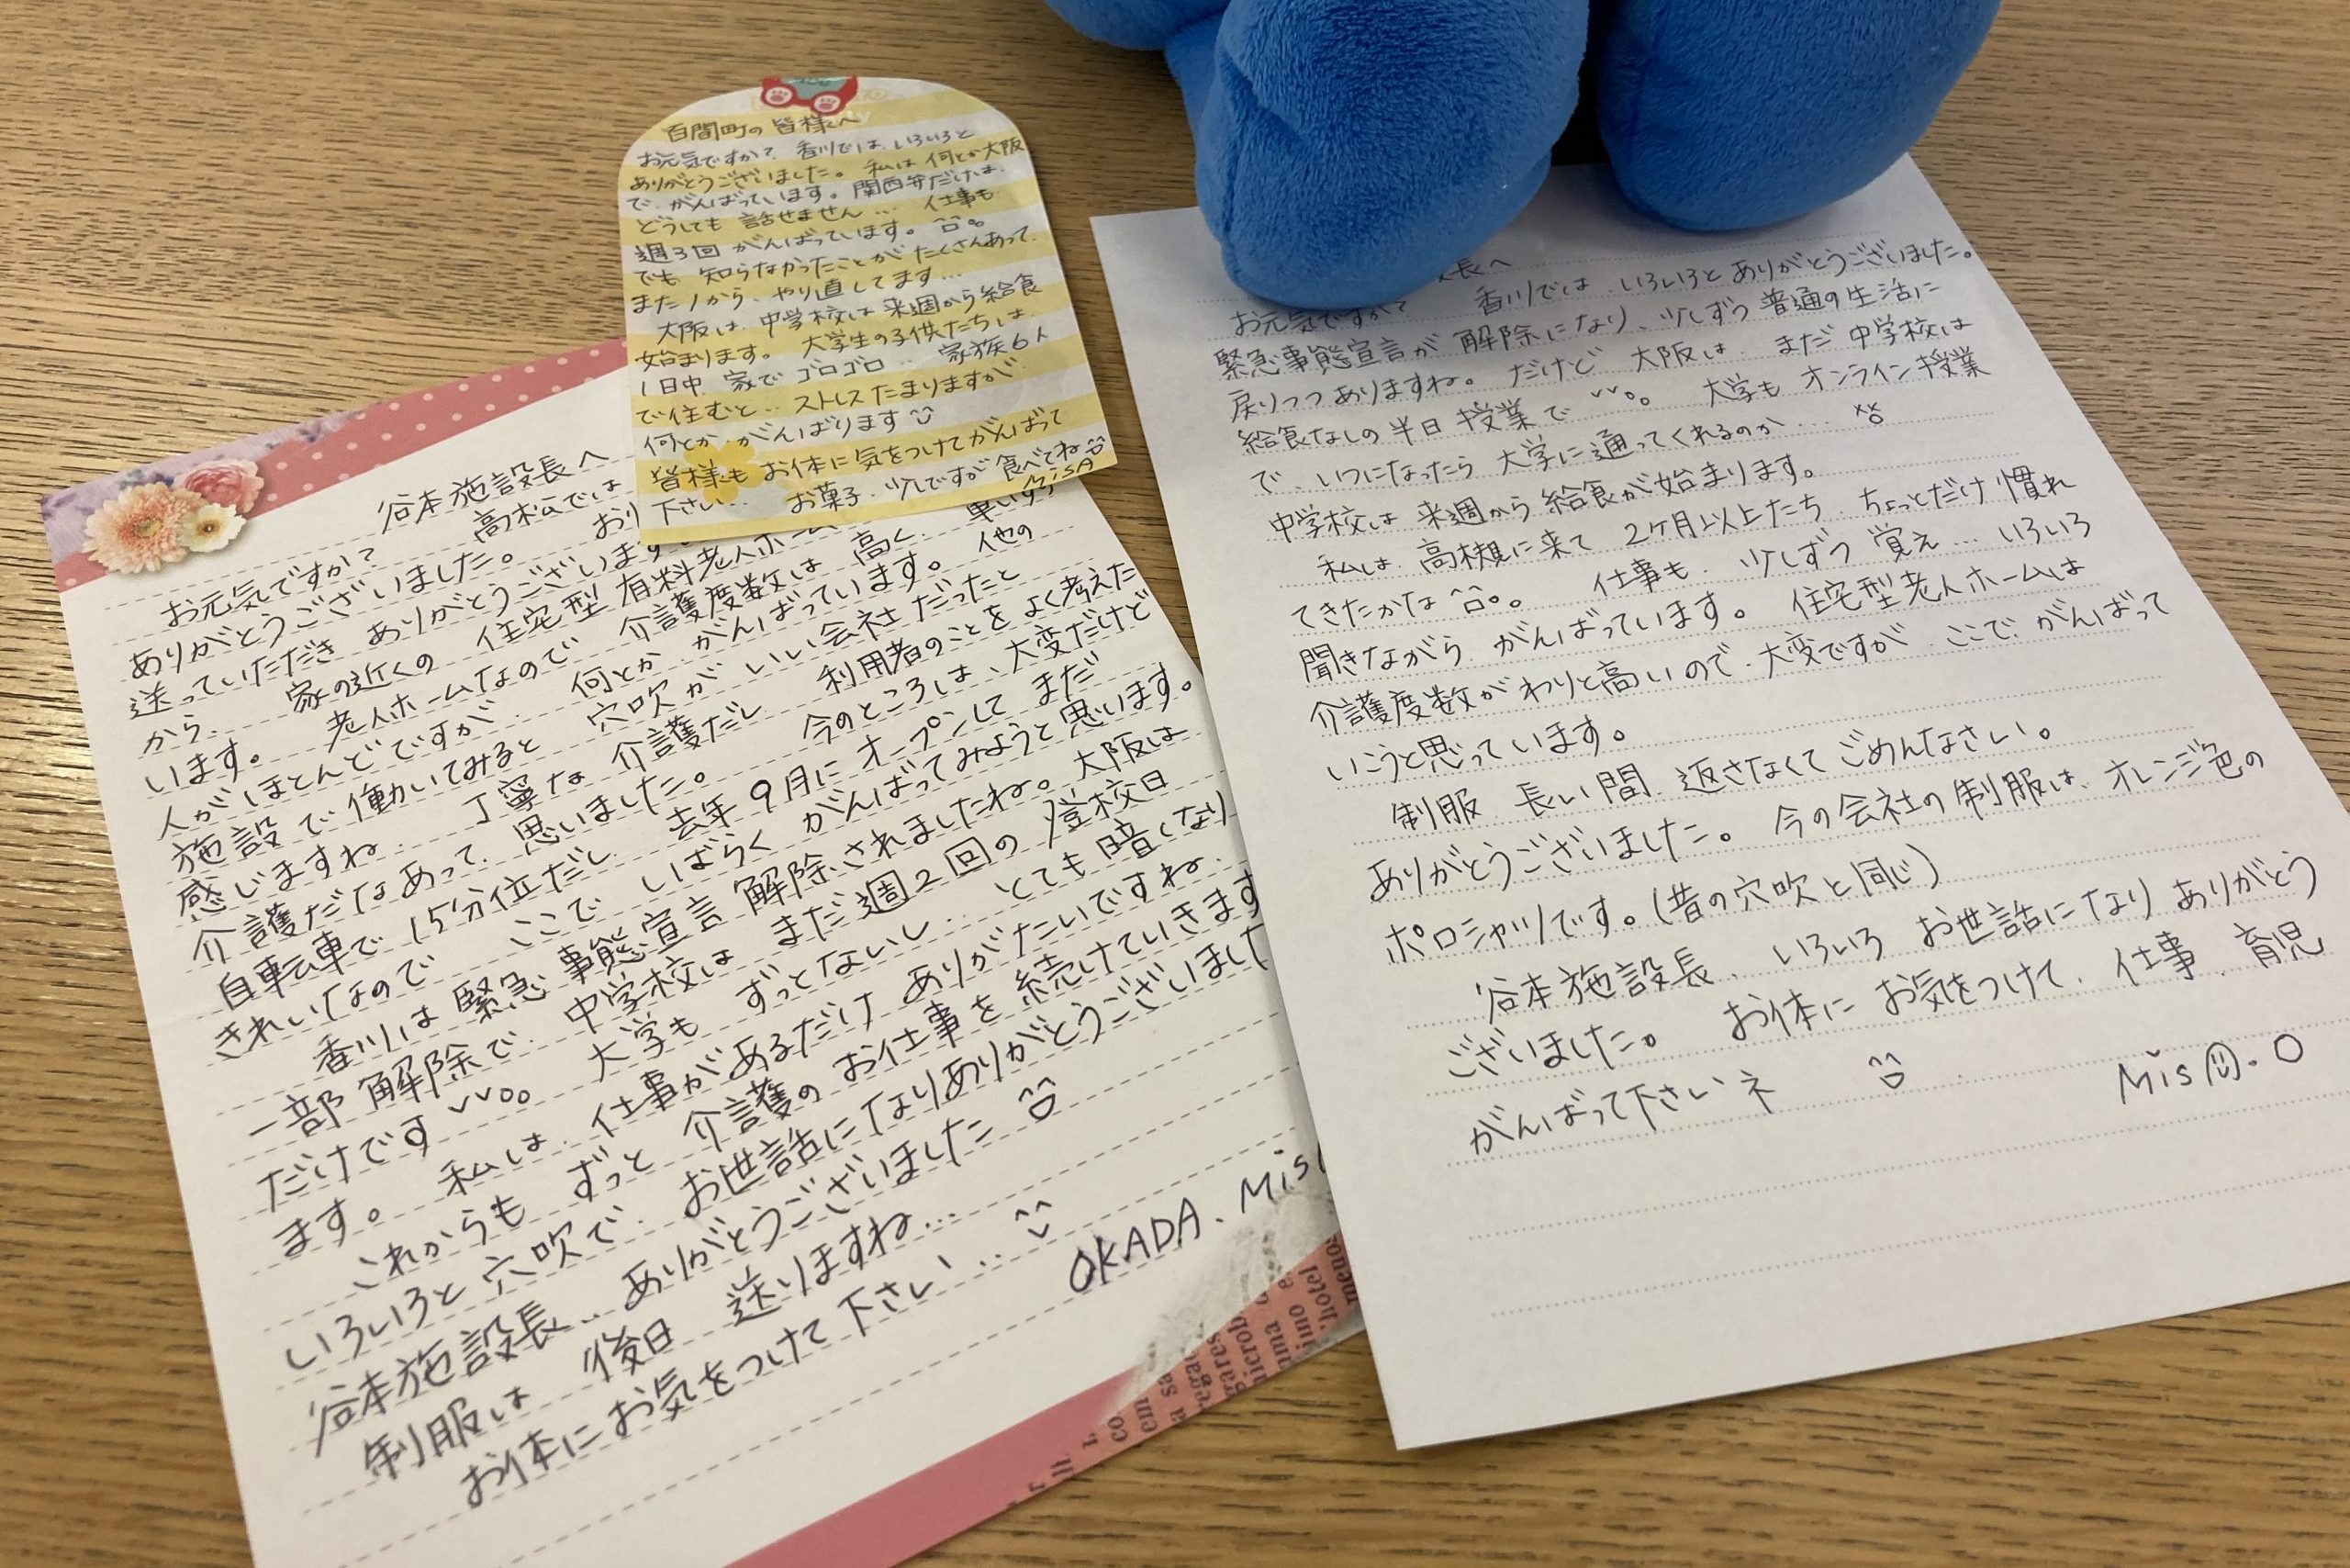 百間町の皆様へ
お元気ですか? 香川では、いろいろと
ありがとうございました。 私は 何とか大阪
で、がんばっています。関西弁だけは、
どうしても 話せません… 仕事も
週3回 がんばっています。
でも、知らなかったことが たくさんあって、
また1から、やり直してます…
大阪は、中学校は 来週から給食
始まります。 大学生の子供たちは、
1日中、家で ゴロゴロ… 家族6人
で住むと… ストレスたまりますが
何とか、がんばります
皆様も お体に気をつけてがんばって
下さい… お菓子、少しですが 食べてね
MisA
谷本施設長へ
お元気ですか? 高松では
ありがとうございました。
送っていただき ありがとうございます
から、 家の近くの 住宅型 有料老人ホーム
います。 老人ホームなので 介護度数は 高く 車いす
人がほとんどですが、何とか がんばっています。 他の
施設で働いてみると 穴吹が いい会社だったと
感じますね、 丁寧な 介護だし 利用者のことをよく考えた
介護だなあって、思いました。 今のところは、大変だけど
自転車で 15分位だし 去年9月に オープンして まだ
きれいなので ここで しばらく がんばってみようと思います。
香川は 緊急事態宣言 解除されましたね。大阪は
一部解除で、中学校は まだ週2回の 登校日
だけです 大学も ずっとないし… とても暗くなり
ます。 私は、仕事があるだけ ありがたいですね、
これからも ずっと 介護の お仕事を 続けていきます
いろいろと 穴吹で、お世話になりありがとうございまし
谷本施設長… ありがとうございました
制服は 後日 送りますね…
お体にお気をつけて下さい…
OKADA. Mis
長へ
お元気ですか? 香川では、いろいろと ありがとうございました。
緊急事態宣言が 解除になり、少しずつ 普通の生活に
戻りつつありますね。 だけど 大阪は、 まだ 中学校は
給食なしの 半日 授業で 大学も オンライン授業
で、いつになったら 大学に通ってくれるのか…
中学校は 来週から 給食が始まります。
私は 高槻に来て 2ヶ月以上たち、ちょっとだけ 慣れ
てきたかな 仕事も、少しずつ 覚え… いろいろ
聞きながら、がんばっています。 住宅型老人ホームは
介護度数が わりと高いので、大変ですが、ここで がんばって
いこうと思っています。
制服 長い間 返さなくて ごめんなさい。
ありがとうございました。 今の会社の 制服は、オレンジ色の
ポロシャツです。(昔の穴吹と同じ)
谷本施設長、いろいろ お世話になり ありがとう
ございました。 お体に お気をつけて、仕事、育児
がんばって下さいネ
Mis . O